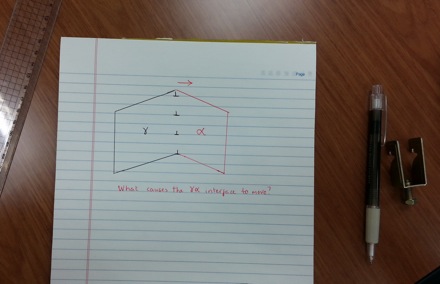 Page
γ
α
What causes the γα interface to move?